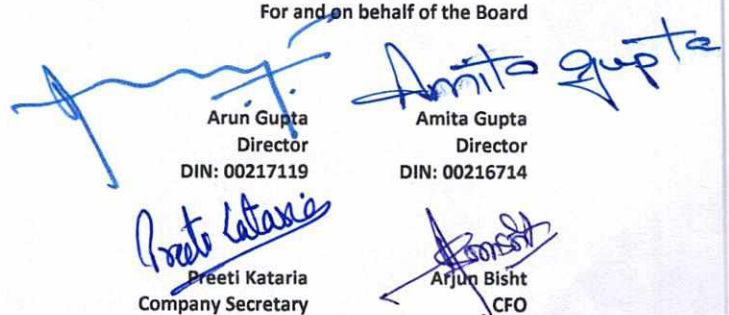 For and on behalf of the Board
Amita Gupta
Arun Gupta
Director
DIN: 00217119
Amita Gupta
Director
DIN: 00216714
Preeti Kataria
Preeti Kataria
Company Secretary
Arjun Bisht
CFO